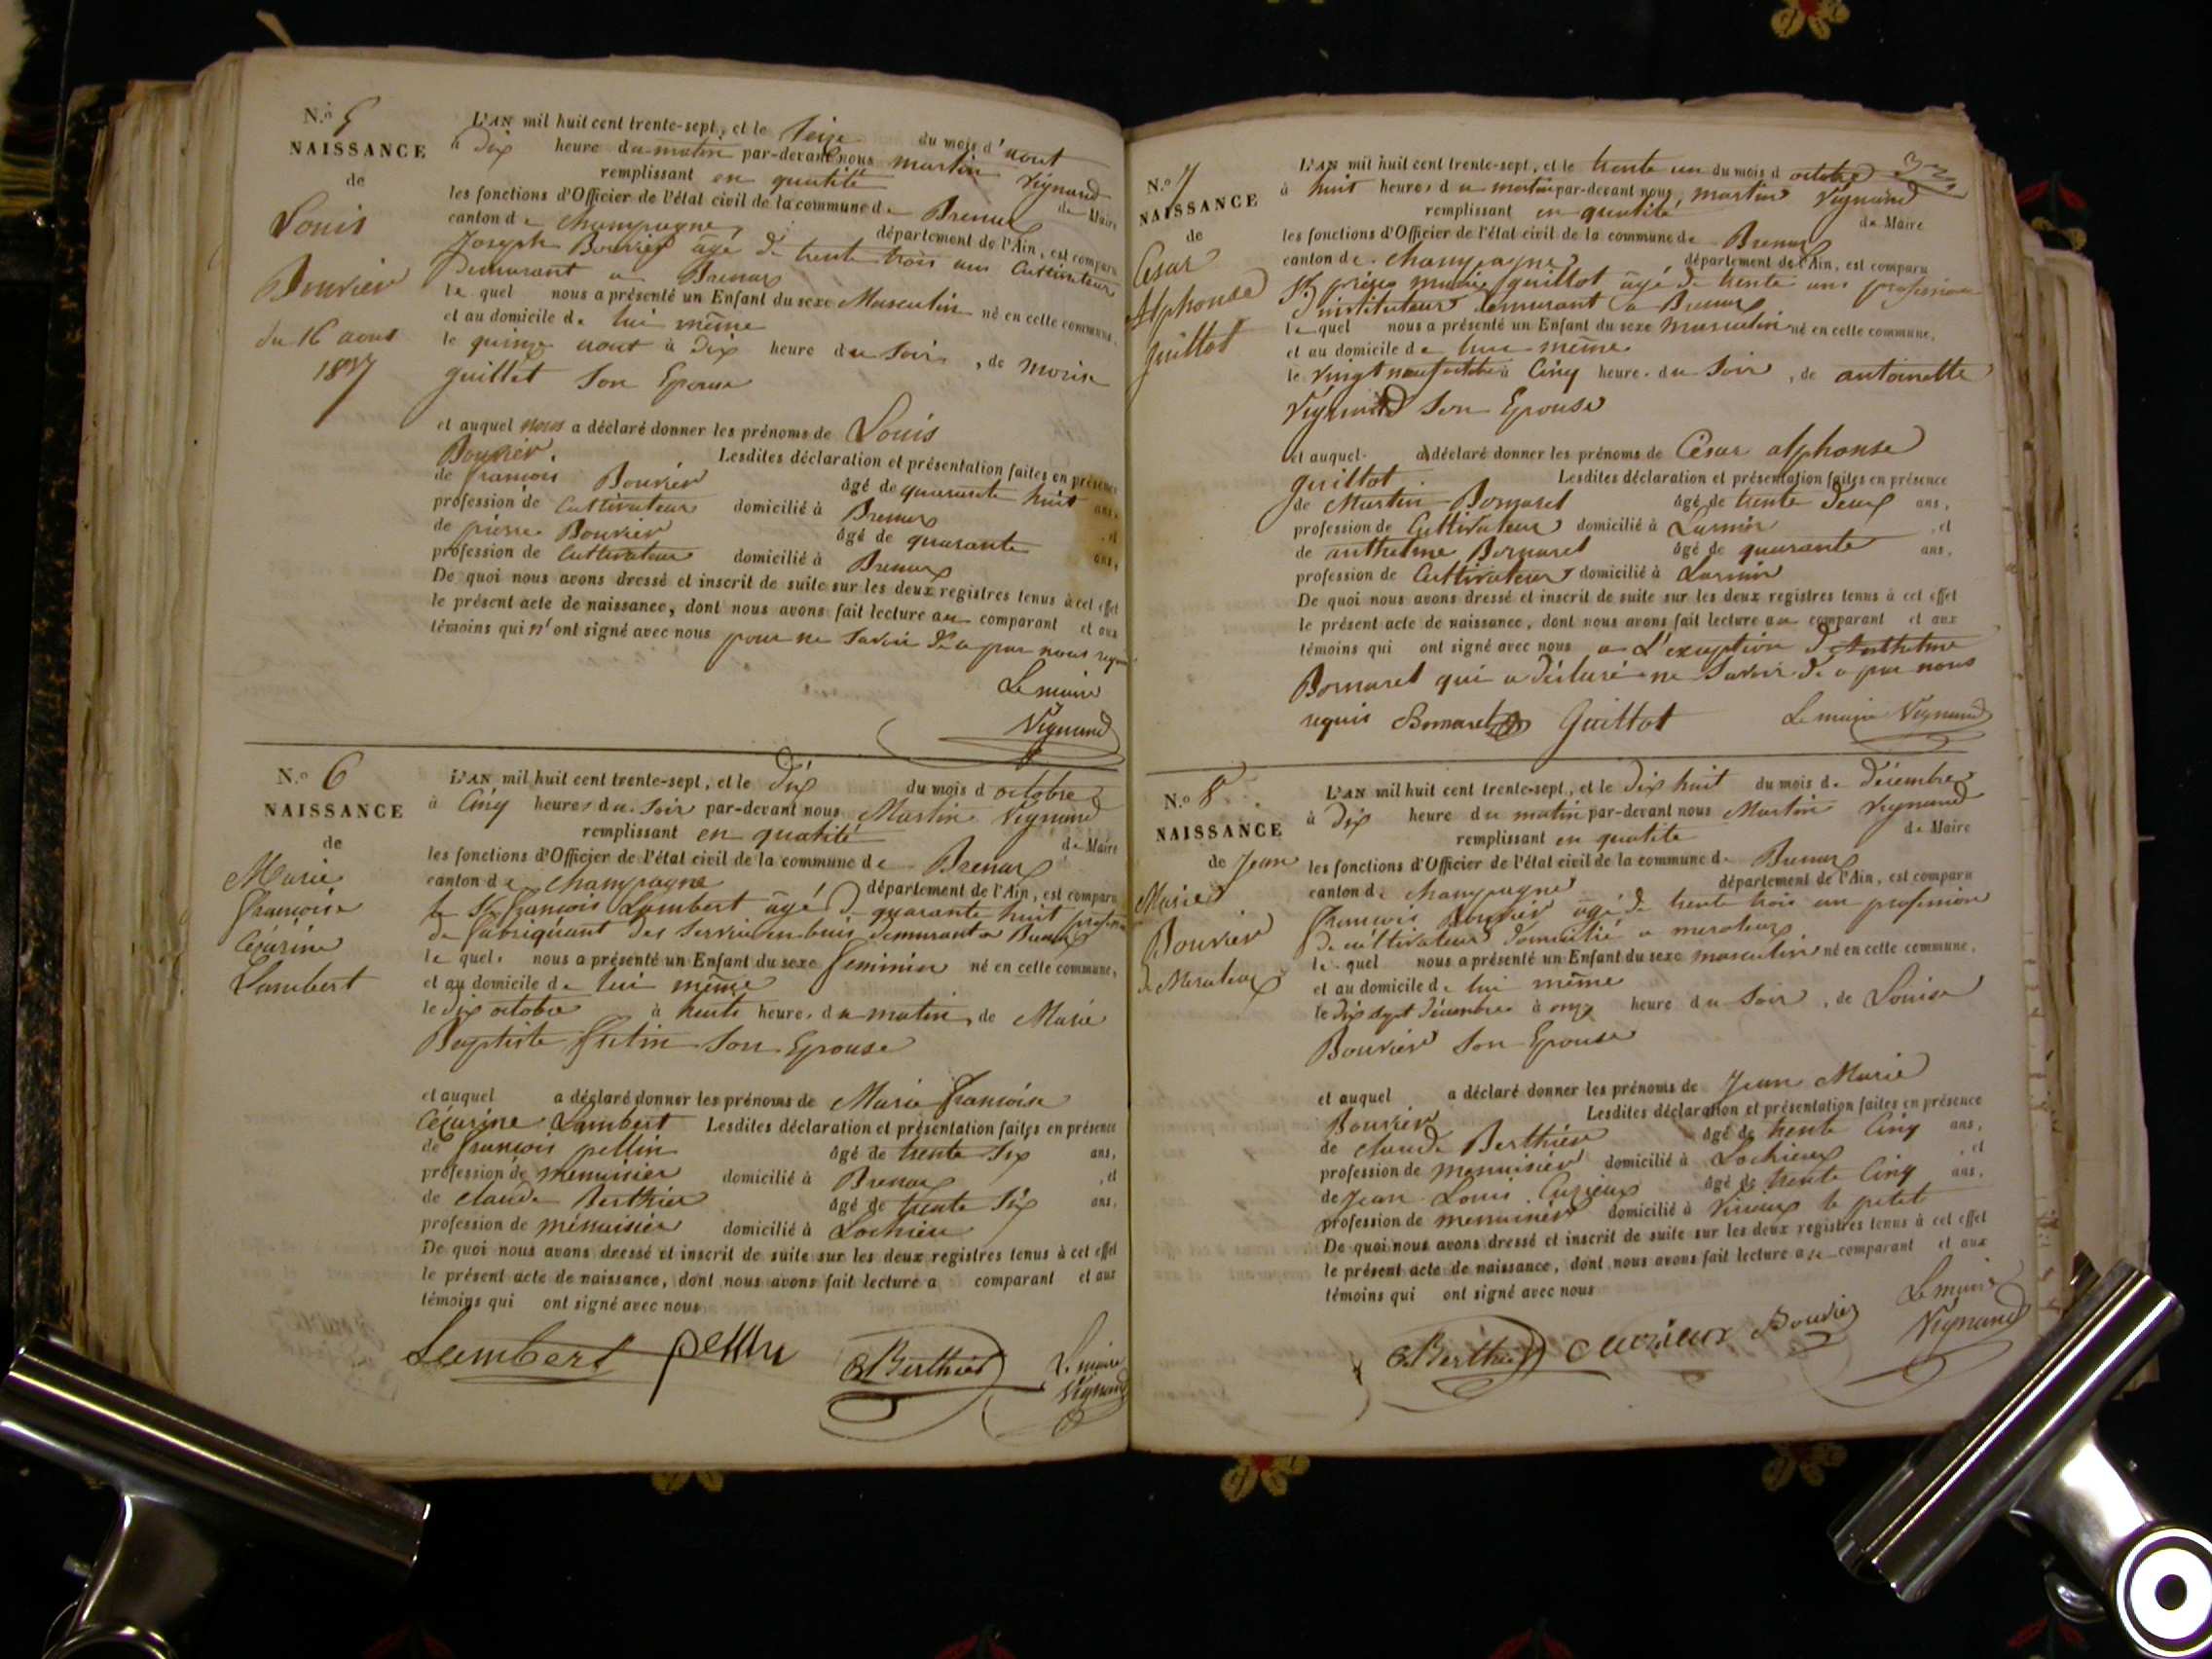 N.º 5
NAISSANCE
de
Louis
Bouvier
du 16 aout
1837
L'AN mil huit cent trente-sept, et le Seize du mois d'aout
à Dix heure du matin par-devant nous martin Vignand
remplissant en quatité de Maire
les fonctions d'Officier de l'état civil de la commune de Brenaz
canton de Champagne, département de l'Ain, est comparu
Joseph Bouvier agé de trente trois ans Cultivateur
Demurant a Brenaz
le quel nous a présenté un Enfant du sexe Masculin né en cette commune,
et au domicile de lui même
le quinze aout à Dix heure du Soir, de Morise
guillet Son Epouse
et auquel nous a déclaré donner les prénoms de Louis
Bouvier. Lesdites déclaration et présentation faites en présence
de françois Bouvier âgé de quarante huit ans,
profession de Cultivateur domicilié à Brenaz, et
de pierre Bouvier âgé de quarante ans,
profession de Cultivateur domicilié à Brenaz
De quoi nous avons dressé et inscrit de suite sur les deux registres tenus à cet effet
le présent acte de naissance, dont nous avons fait lecture au comparant et aux
témoins qui n'ont signé avec nous pour ne Savoir de a par nous requis
Le maire
Vignand
N.º 6
NAISSANCE
de
Marie
françoise
Cézarine
Lambert
L'AN mil huit cent trente-sept, et le Dix du mois d octobre
à Cinq heures du Soir par-devant nous Martin Vignand
remplissant en quatité de Maire
les fonctions d'Officier de l'état civil de la commune de Brenaz
canton de Champagne département de l'Ain, est comparu
le Sr françois Lambert agé de quarante huit profession
de fabriquant des Servic en buis demurant a Brenaz
le quel nous a présenté un Enfant du sexe feminin né en cette commune,
et au domicile de lui même
le dix octobre à heure du matin, de Marie
Baptiste Son Epouse
et auquel a déclaré donner les prénoms de Marie françoise
Cézarine Lambert Lesdites déclaration et présentation faites en présence
de françois pellin âgé de trente Six ans,
profession de menuisier domicilié à Brenaz, et
de claude Berthier âgé de trente Six ans,
profession de ménuisier domicilié à Lochieu
De quoi nous avons dressé et inscrit de suite sur les deux registres tenus à cet effet
le présent acte de naissance, dont nous avons fait lecture a comparant et aux
témoins qui ont signé avec nous
Lambert pellin Berthier Le maire
Vignand
N.º 7
NAISSANCE
de
Cesar
Alphonse
guillot
L'AN mil huit cent trente-sept, et le trente un du mois d octobre
à huit heures du matin par-devant nous, martin Vignand
remplissant en quatité de Maire
les fonctions d'Officier de l'état civil de la commune de Brenaz
canton de Champagne département de l'Ain, est comparu
Sr marie guillot agé de trente ans profession
D'instituteur demurant a Brenaz
le quel nous a présenté un Enfant du sexe masculin né en cette commune,
et au domicile de lui même
le Vingt neuf octobre à Cinq heure du Soir, de antoinette
Vignand Son Epouse
et auquel a déclaré donner les prénoms de Cesar alphonse
guillot Lesdites déclaration et présentation faites en présence
de Martin Bornarel âgé de trente Deux ans,
profession de Cultivateur domicilié à, et
de anthelme Bornarel âgé de quarante ans,
profession de Cultivateur domicilié à
De quoi nous avons dressé et inscrit de suite sur les deux registres tenus à cet effet
le présent acte de naissance, dont nous avons fait lecture au comparant et aux
témoins qui ont signé avec nous a L'exception D'Anthelme
Bornarel qui a déclaré ne Savoir de a par nous
requis Bornarel Guillot Le maire Vignand
N.º 8
NAISSANCE
de Jean
Marie
Bouvier
L'AN mil huit cent trente-sept, et le Dix huit du mois de Décembre
à Dix heure du matin par-devant nous Martin Vignand
remplissant en quatité de Maire
les fonctions d'Officier de l'état civil de la commune de Brenaz
canton de Champagne département de l'Ain, est comparu
françois Bouvier agé de trente trois ans profession
De cultivateur domicilié a
le quel nous a présenté un Enfant du sexe masculin né en cette commune,
et au domicile de lui même
le Dix sept Décembre à onze heure du Soir, de Louise
Bouvier Son Epouse
et auquel a déclaré donner les prénoms de Jean Marie
Bouvier Lesdites déclaration et présentation faites en présence
de claude Berthier âgé de trente Cinq ans,
profession de menuisier domicilié à Lochieu, et
de Jean Louis Curieux âgé de trente Cinq ans,
profession de menuisier domicilié à Virieux le petit
De quoi nous avons dressé et inscrit de suite sur les deux registres tenus à cet effet
le présent acte de naissance, dont nous avons fait lecture au comparant et aux
témoins qui ont signé avec nous
Berthier Curieux Bouvier Le maire
Vignand